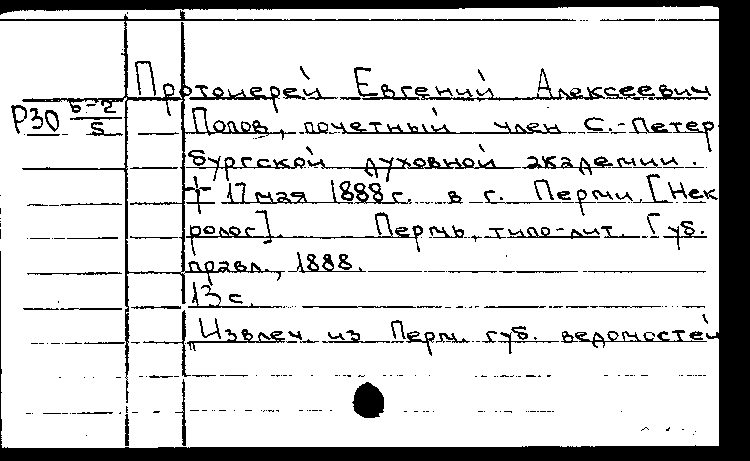 Протоиерей Евгений Алексеевич
Р30 Б-2/5
Попов, почетный член С.-Петер-
бургской духовной академии.
† 17 мая 1888 г. в г. Перми. [Нек-
ролог]. Пермь, типо-лит. Губ.
правл., 1888.
13 с.
"Извлеч. из Перм. губ. ведомостей